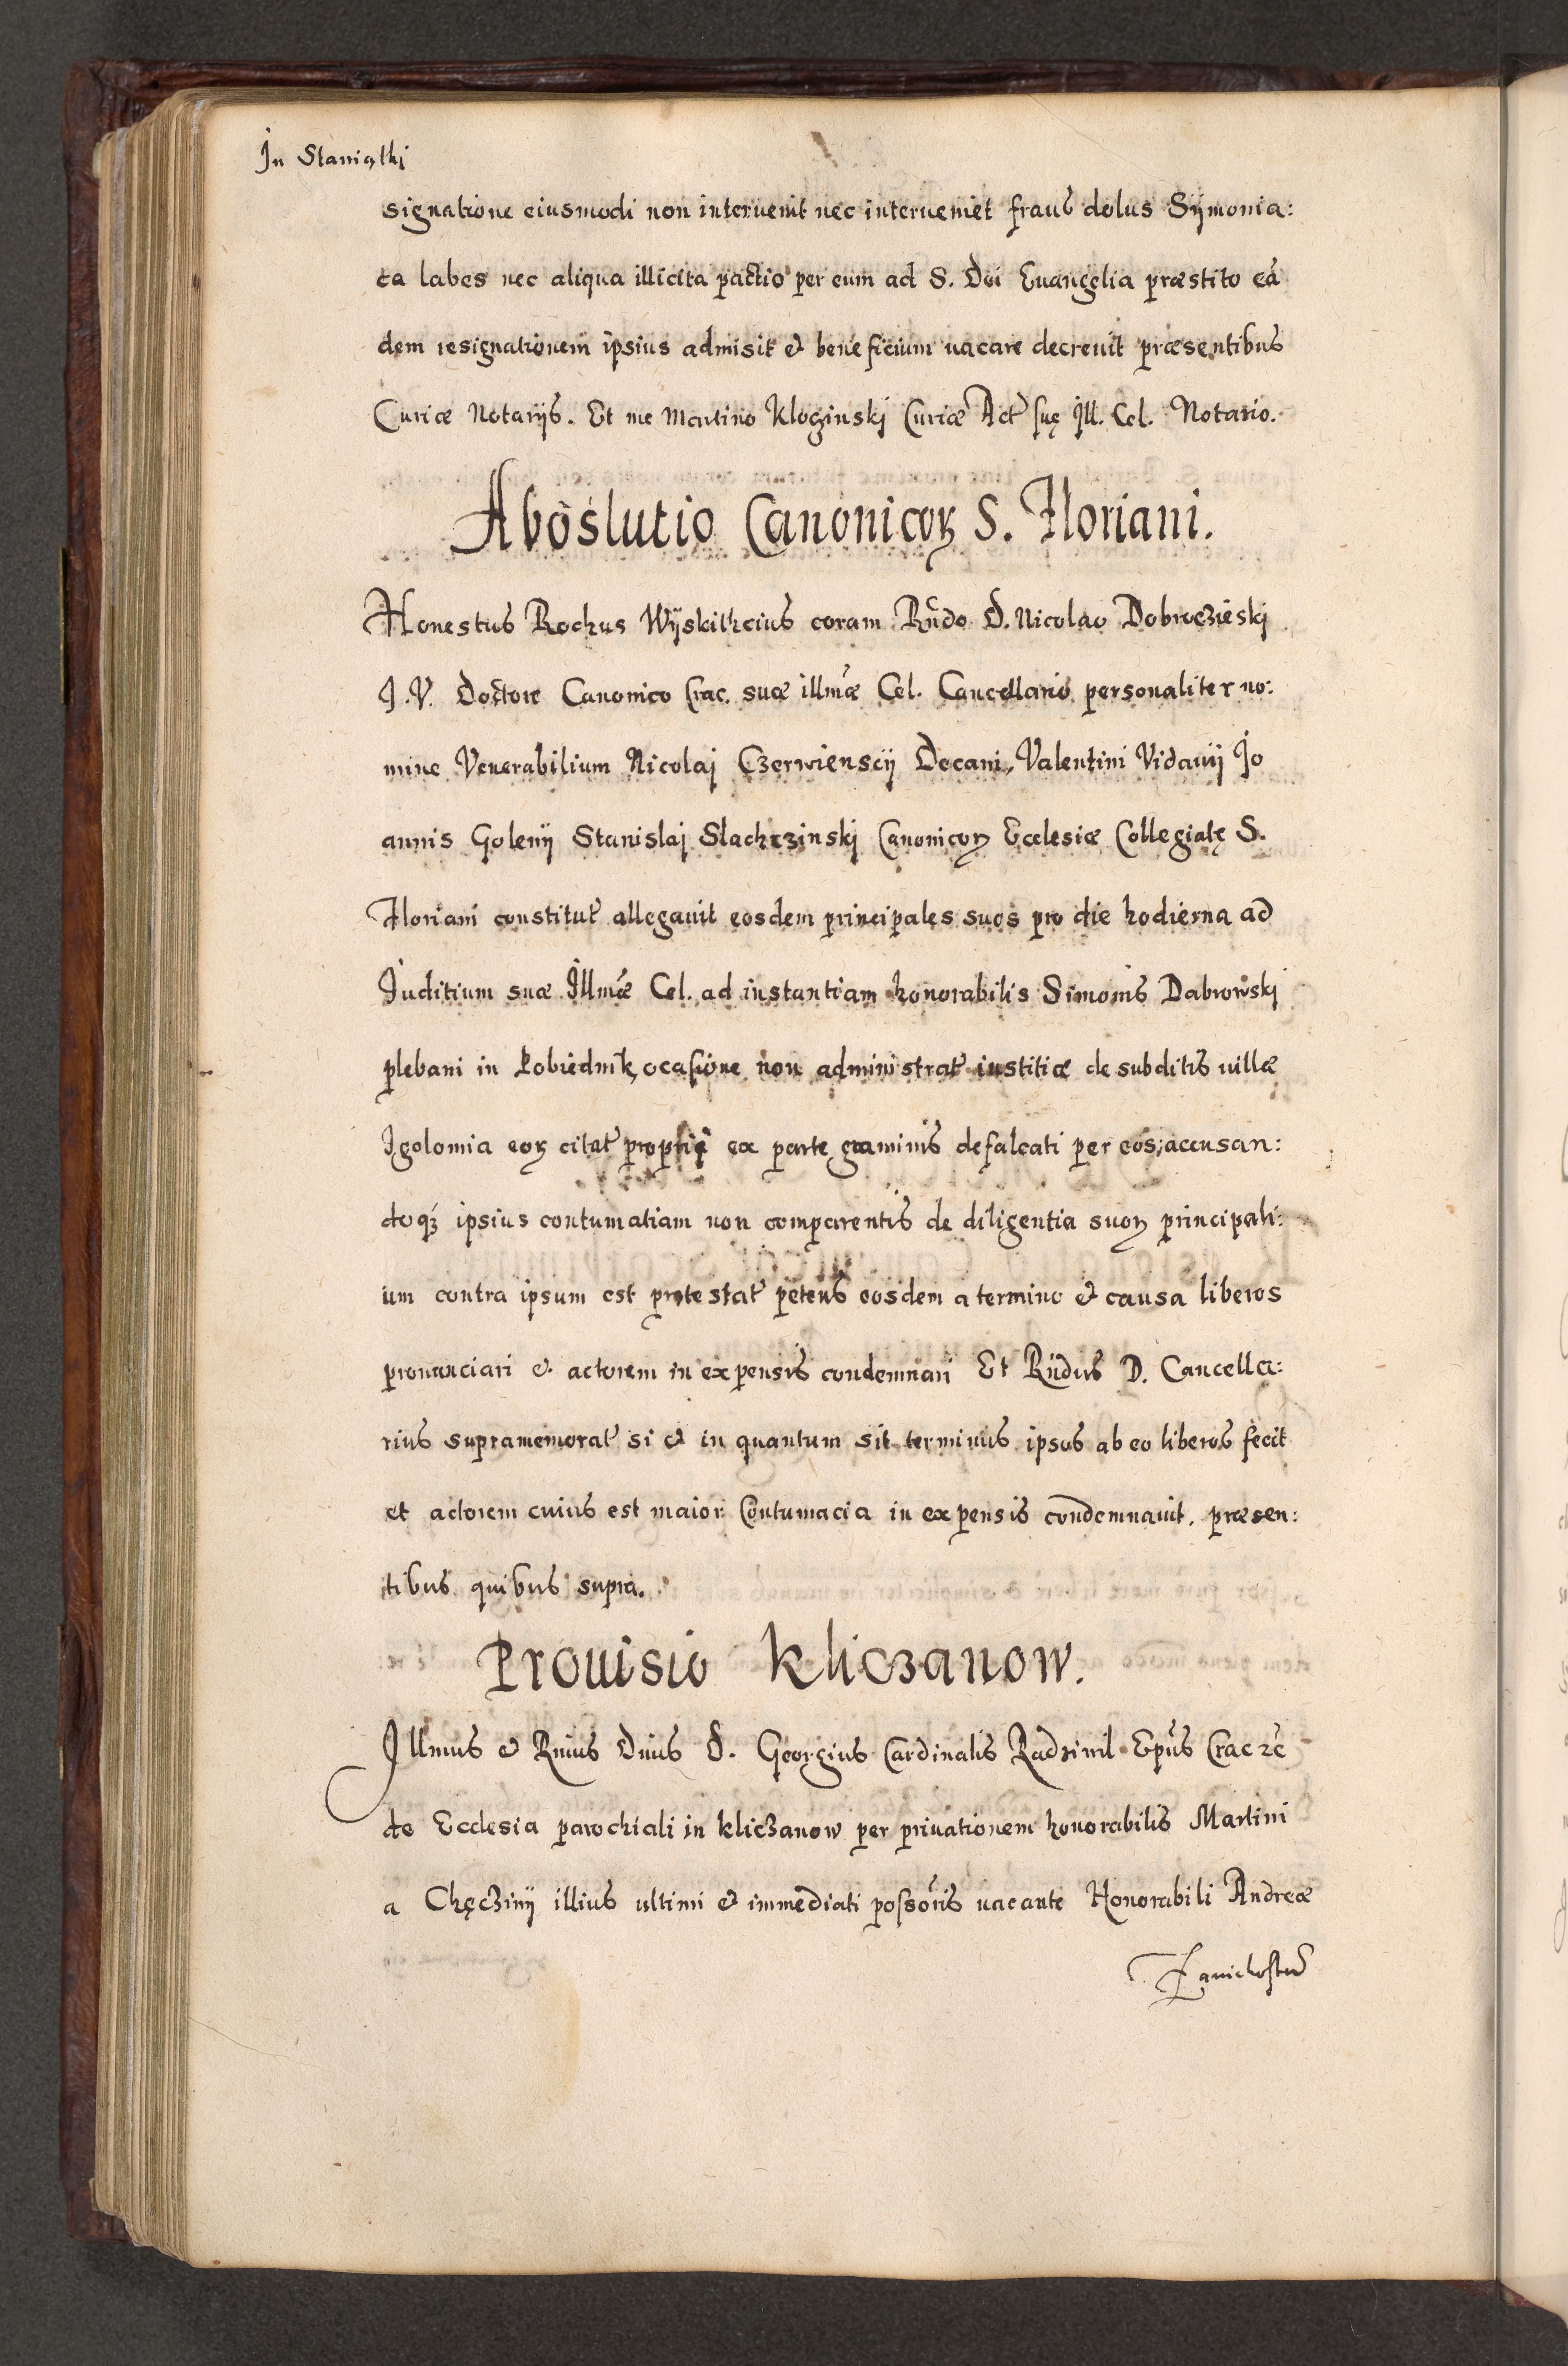 In Staniątki
signatione eiusmodi non interuenit nec interueniet fraus dolus Sÿmonia:
ca labes nec aliqua illicita pactio per eum ad S. Dei Euangelia præstito eã
dem resignationem ipsius admisit & beneficium uacare decreuit præsentibus
Curiæ Notarijs. Et me Martino Kloginskj Curiæ Act̃ suę Ill. Cel. Notario.
Aboslutio Canonicoꝝ S. Floriani.
Honestus Rochus Wÿskithcius coram Rñdo D. Nicolao Dobroczieskj
J. V. Doctore Canonico Crac. suæ illm̃æ Cel. Cancellario personaliter no:
mine Venerabilium Nicolaj Czerwienscÿ Decani, Valentini Vidauij Jo
annis Golenÿ Stanislaj Slachczinskj Canonicoꝝ Ecclesiæ Collegiatę S.
Floriani constitut̃ allegauit eosdem principales suos pro die hodierna ad
Juditium suæ Illm̃æ Cel. ad instantiam honorabilis Simonis Dabrowskj
plebani in Łobiednik, ocasione non administrat̃ iustitiæ de subditis uillæ
Igolomia eoꝝ citat̃ proprię ex parte graminis defalcati per eos, accusan:
doqꝫ ipsius contumatiam non comparentis de diligentia suoꝝ principali:
um contra ipsum est protestat̃ petens eosdem a termino & causa liberos
pronunciari & actorem in expensis condemnari Et Rñdus D. Cancella:
rius supramemorat̃ si & in quantum sit terminus ipsos ab eo liberos fecit
et actorem cuius est maior Contumacia in expensis condemnauit. præsen:
tibus quibus supra.
Prouisio Kliczanow.
Illmus & Rmus Dñus D. Georgius Cardinalis Radziuil Epũs Crac ꝛc̃
de Ecclesia parochiali in Kliczanow per priuationem honorabilis Martini
a Chęczinÿ illius ultimi & immediati possoris̃ uacante Honorabili Andreæ